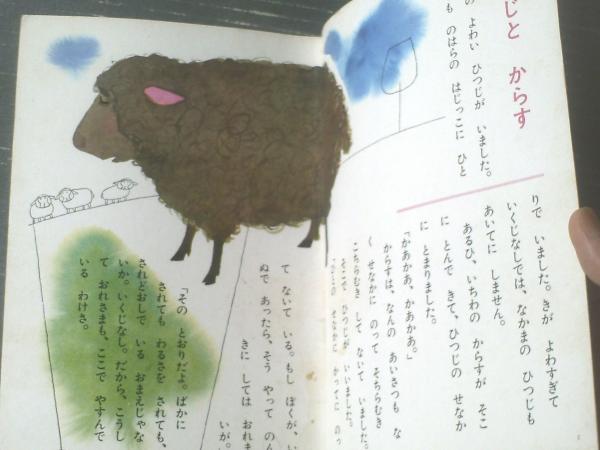 じと からす
の よわい ひつじが いました。
も のはらの はじっこに ひと
りで いました。きが よわすぎて
いくじなしでは、なかまの ひつじも
あいてに しません。
あるひ、いちわの からすが そこ
に とんで きて、ひつじの せなか
に とまりました。
「かあかあ、かあかあ。」
からすは、なんの あいさつも な
く せなかに のって そちらむき
こちらむき して ないて いました。
そこで ひつじが いいました。
せなかに かってに のっ
て ないて いる。もし ぼくが、い
ぬで あったら、そう やって のん
きに しては おれま
いが。
「その とおりだよ。ばかに
されても わるさを されても、
されどおしで いる おまえじゃな
いか。いくじなし。だから、こうし
て おれさまも、ここで やすんで
いる わけさ。